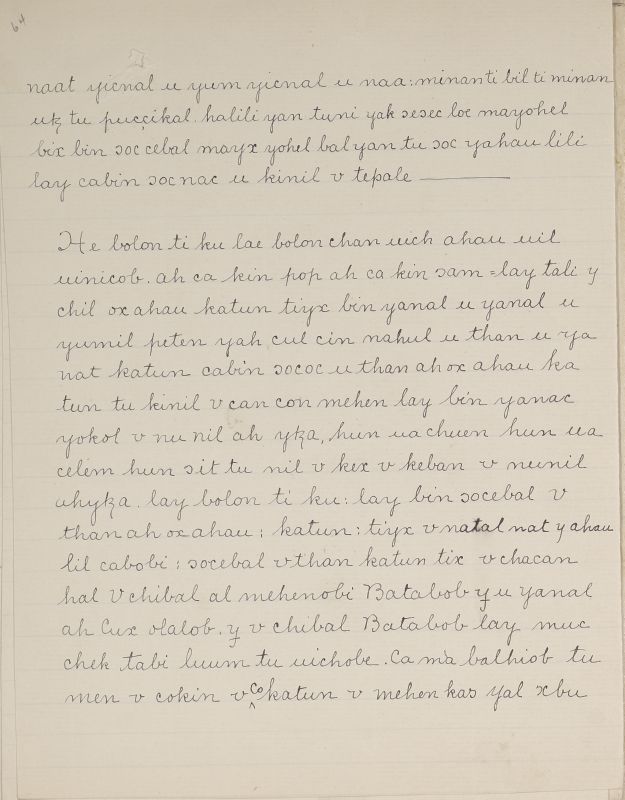 64
naat yicnal u yum yicnal u naa: minan ti bil ti minan
utz tu puccikal. halili yan tuni yak sesec loc mayohel
bix bin ɔoc cebal mayx yohel bal yan tu ɔoc yahau lili
lay cabin ɔocnac u kinil v tepale
He bolon ti ku lae bolon chan uich ahau uil
uinicob. ah ca kin pop ah ca kin ɔam = lay tali y
chil ox ahau katun tiyx bin yanal u yanal u
yumil peten yah cul cin nahul u than u ya
nat katun cabin ɔococ u than ah ox ahau ka
tun tu kinil v can con mehen lay bin yanac
yokol v nu nil ah ytza, hun uachuen hun ua
celem hun ɔit tu nil v kex v keban v nunil
ahytza. lay bolon ti ku: lay bin ɔocebal v
than ah ox ahau: katun: tiyx v natal nat y ahau
lil cabobi: ɔocebal v than katun tix v chacan
hal V chibal al mehenobi Batabob y u yanal
ah Cux olalob. y v chibal Batabob lay muc
chek tabi luum tu uichobe. Ca ma balhiob tu
men v cokin v co katun v mehen kas yal x bu